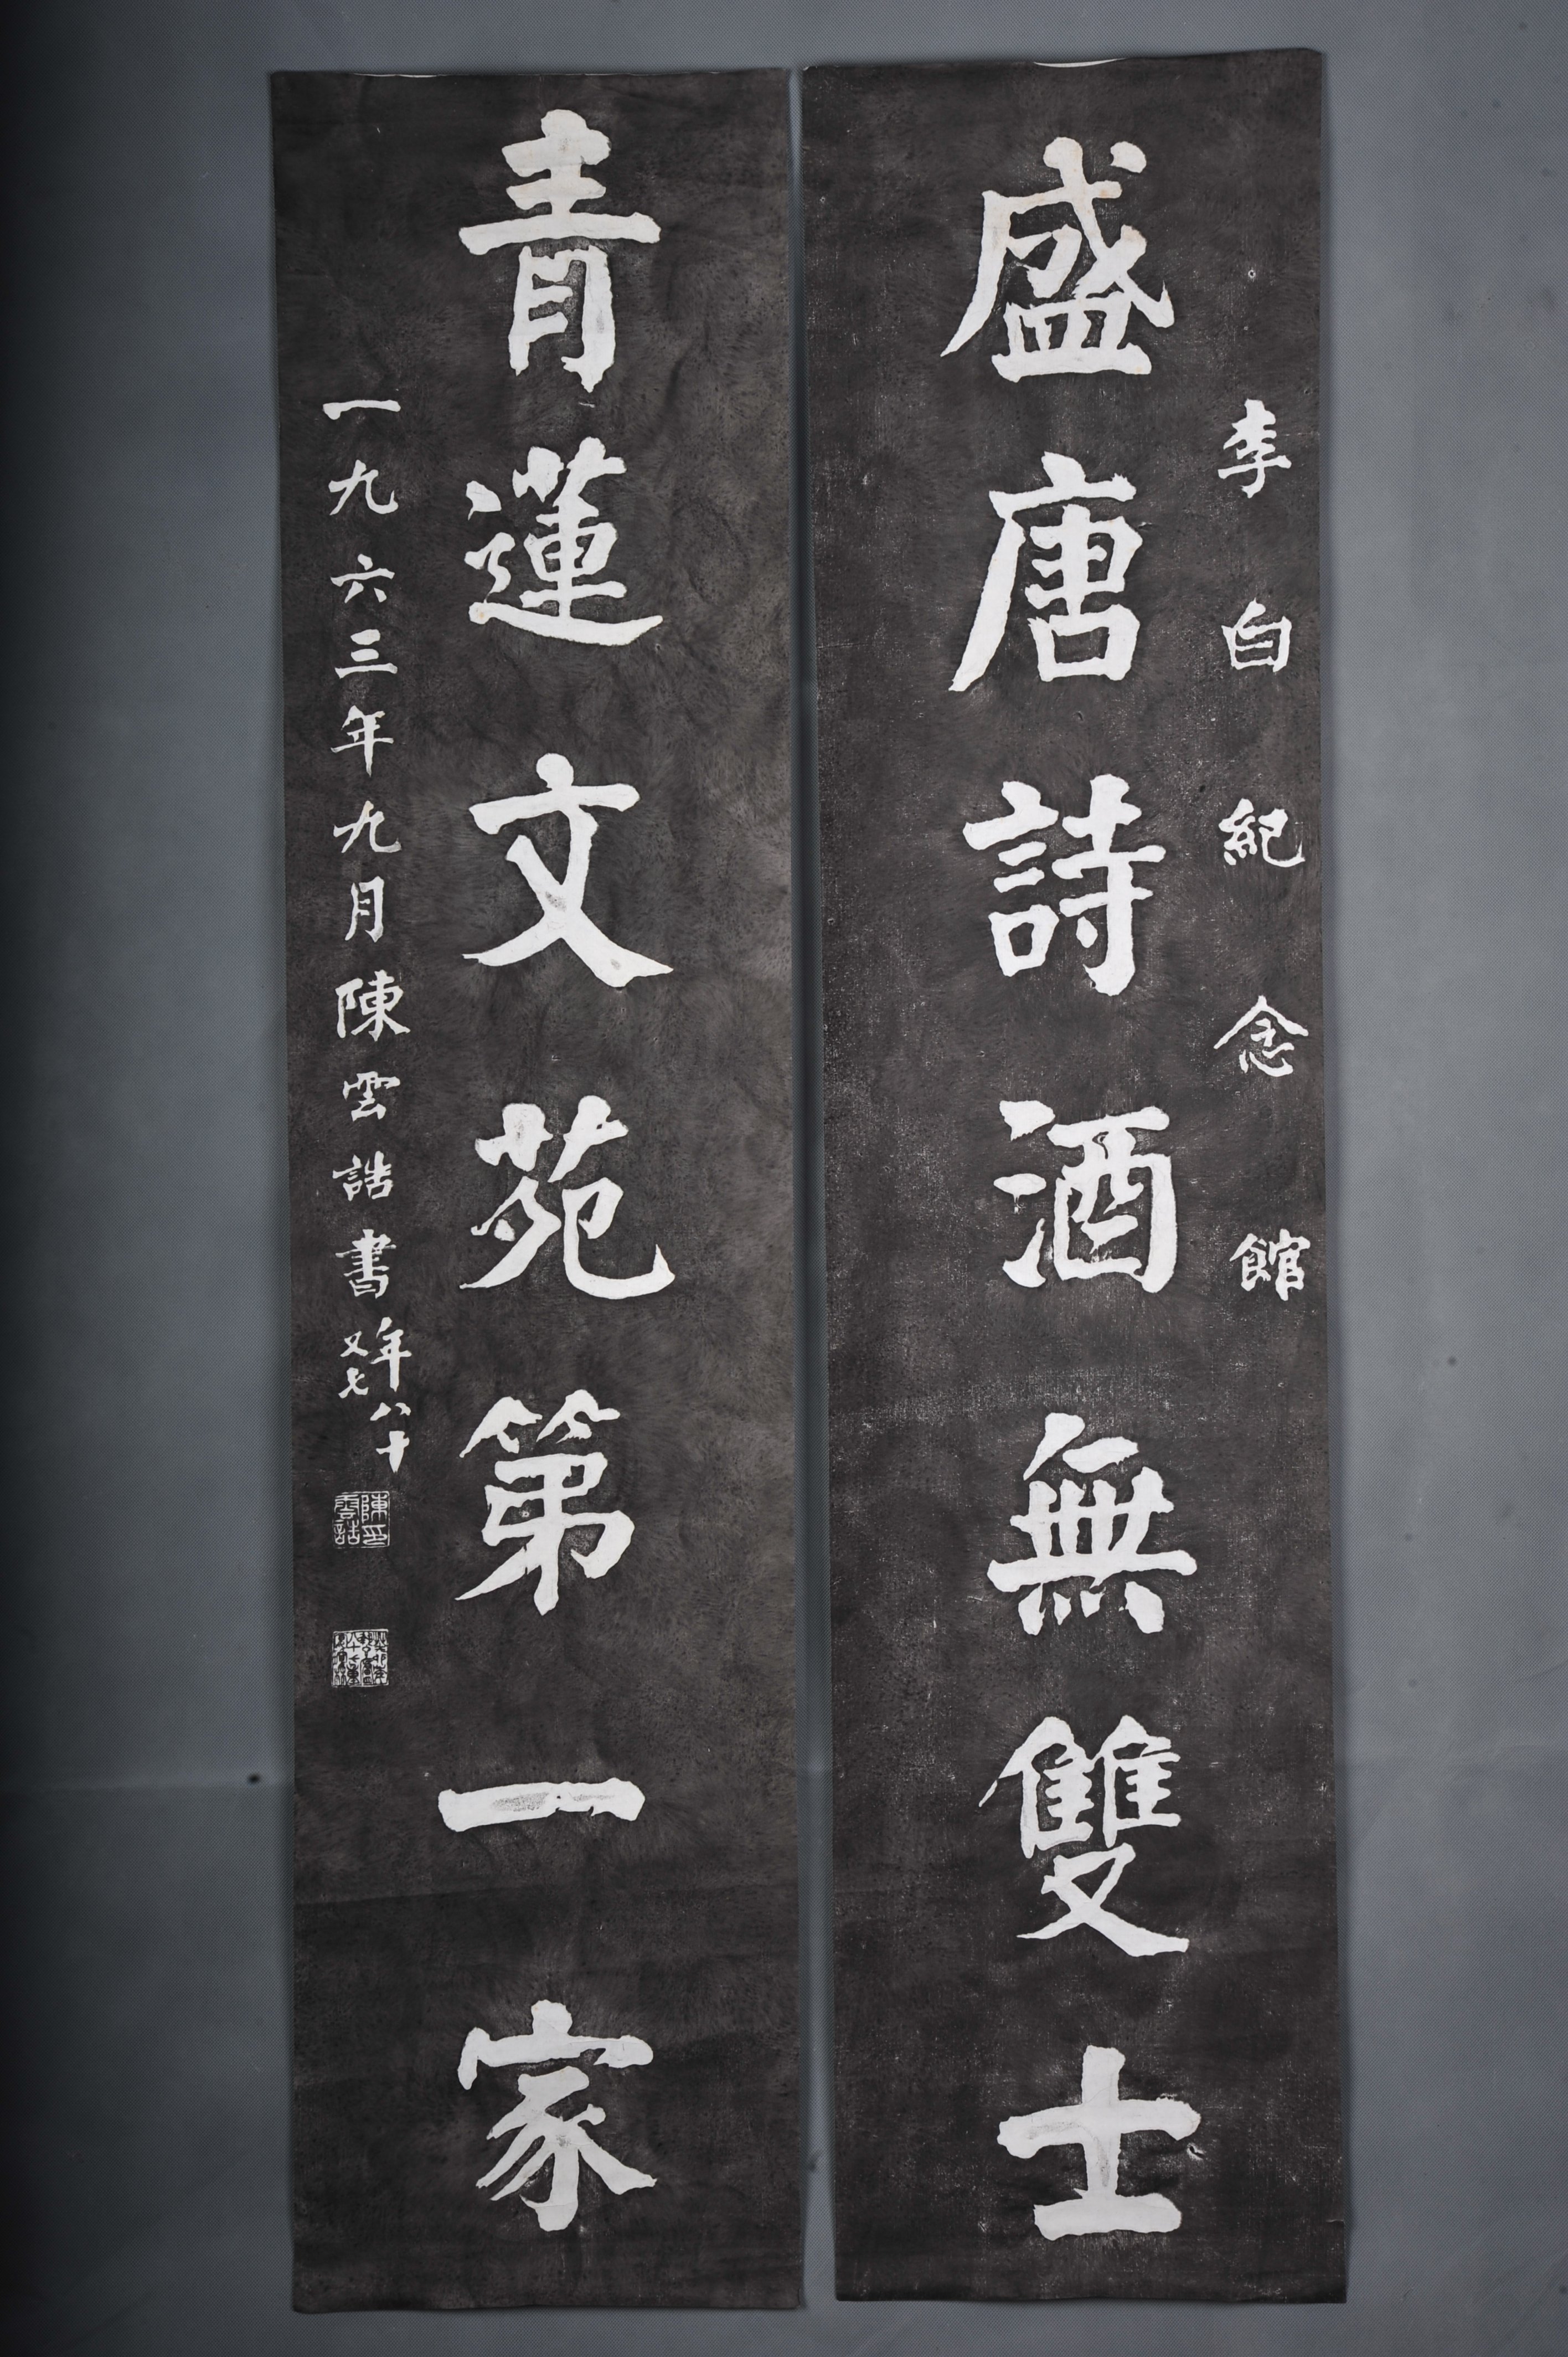 李白紀念館
盛唐詩酒無雙士
青蓮文苑第一家
一九六三年九月陳雲誥書
年八十
又七
陳印
雲誥